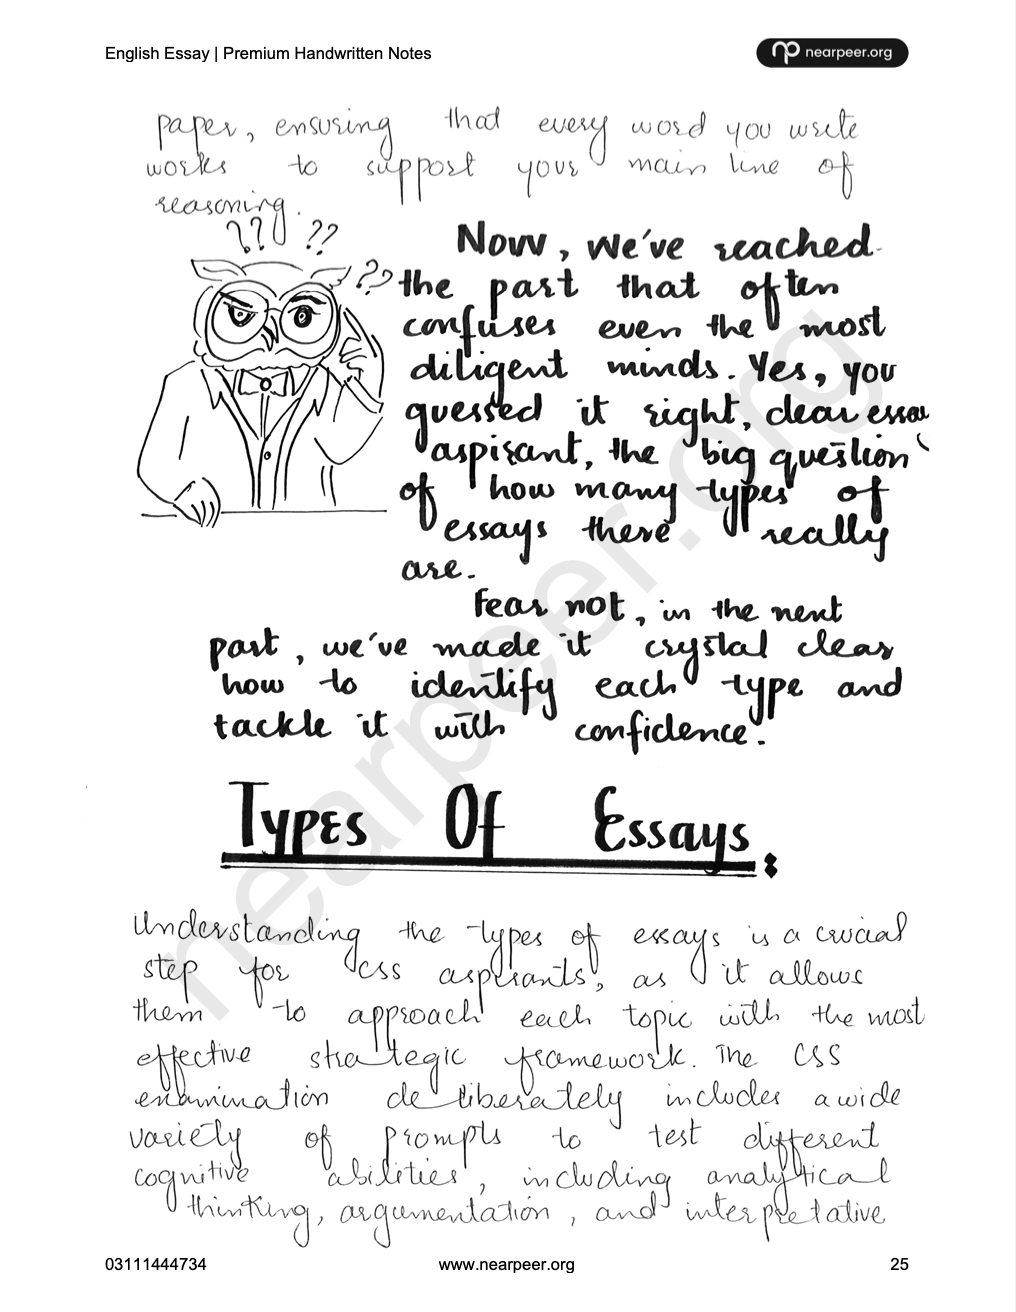 English Essay | Premium Handwritten Notes
nearpeer.org
paper, ensuring that every word you write
works to support your main line of
reasoning.
??? ??
??
Now, we've reached
the part that often
confuses even the most
diligent minds. Yes, you
guessed it right, dear essay
aspirant, the big question
of how many types of
essays there really
are.
Fear not, in the next
part, we've made it crystal clear
how to identify each type and
tackle it with confidence.
Types Of Essays:
Understanding the types of essays is a crucial
step for CSS aspirants, as it allows
them to approach each topic with the most
effective strategic framework. The CSS
examination deliberately includes a wide
variety of prompts to test different
cognitive abilities, including analytical
thinking, argumentation, and interpretative
nearpeer.org
03111444734
www.nearpeer.org
25